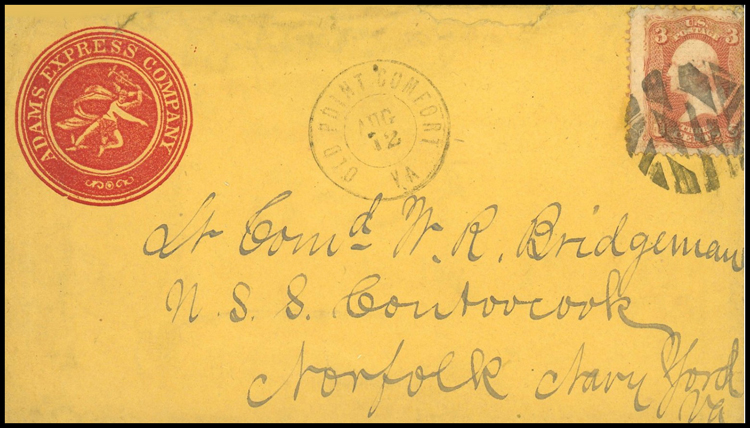 ADAMS EXPRESS COMPANY
OLD POINT COMFORT VA
AUG
12
U.S.
POSTAGE
3 3
Lt Comd W. R. Bridgeman
U. S. S. Contoocook
Norfolk Navy Yard
Va